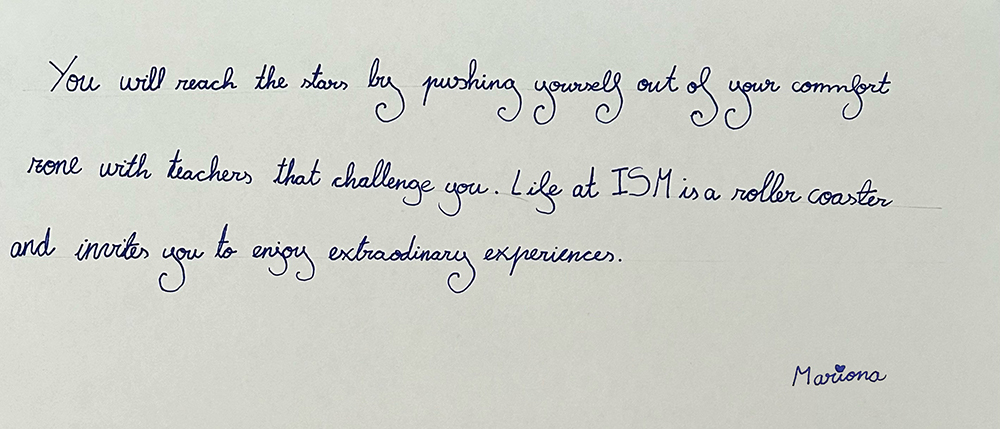 You will reach the stars by pushing yourself out of your commfort
zone with teachers that challenge you. Life at ISM is a roller coaster
and invites you to enjoy extraodinary experiences.
Mariona